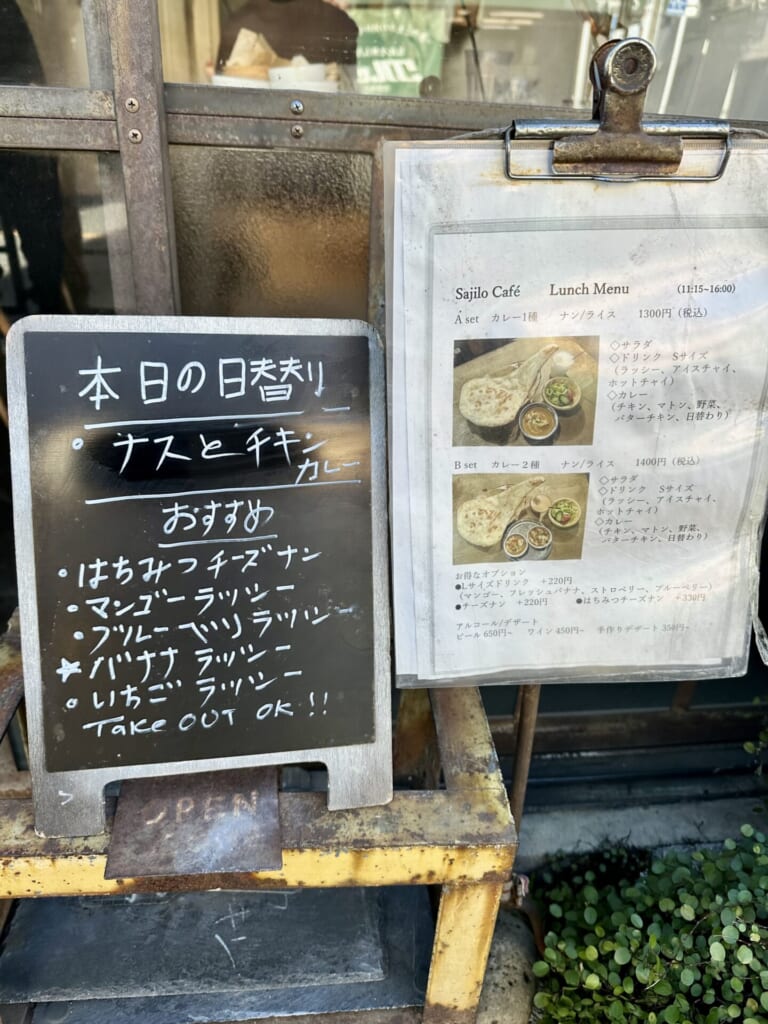 本日の日替り
・ナスとチキン
カレー
おすすめ
・はちみつチーズナン
・マンゴーラッシー
・ブルーベリーラッシー
★バナナラッシー
・いちごラッシー
Take OUT OK !!
OPEN
Sajilo Café Lunch Menu (11:15~16:00)
A set カレー1種 / ナン/ライス 1300円（税込）
◇サラダ
◇ドリンク Sサイズ
（ラッシー、アイスチャイ、
ホットチャイ）
◇カレー
（チキン、マトン、野菜、
バターチキン、日替わり）
B set カレー２種 ナン/ライス 1400円（税込）
◇サラダ
◇ドリンク Sサイズ
（ラッシー、アイスチャイ、
ホットチャイ）
◇カレー
（チキン、マトン、野菜、
バターチキン、日替わり）
お得なオプション
●Lサイズドリンク +220円
（マンゴー、フレッシュバナナ、ストロベリー、ブルーベリー）
●チーズナン +220円 ●はちみつチーズナン +330円
アルコール/デザート
ビール 650円~ ワイン 450円~ 手作りデザート 350円~